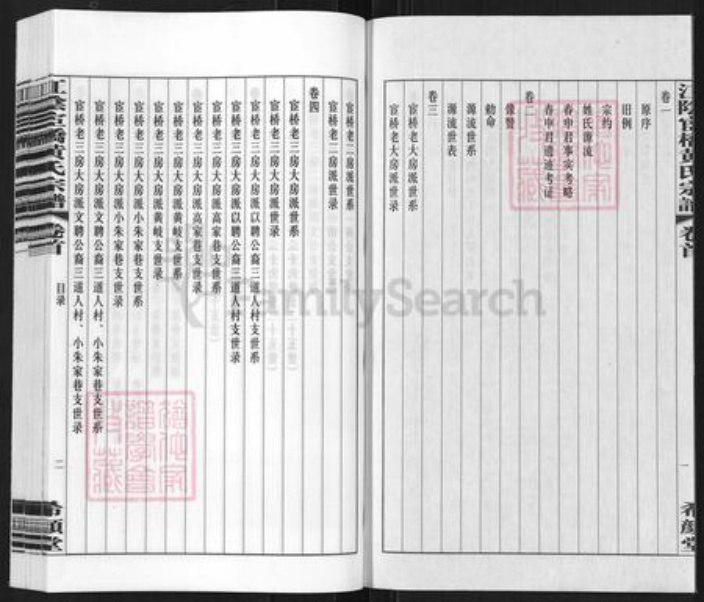 江陰官橋黃氏宗譜 卷首
一
希顔堂
卷一
原序
旧例
宗约
姓氏源流
春申君事实考略
春申君遗迹考证
卷二
像赞
敕命
源流世系
源流世表
卷三
官桥老大房派世系
官桥老大房派世录
官桥老二房派世系
官桥老二房派世录
卷四
官桥老三房大房派世系
官桥老三房大房派世录
官桥老三房大房派以聘公裔三道人村支世系
官桥老三房大房派以聘公裔三道人村支世录
官桥老三房大房派高家巷支世系
官桥老三房大房派高家巷支世录
官桥老三房大房派黄岐支世系
官桥老三房大房派黄岐支世录
官桥老三房大房派小朱家巷支世系
官桥老三房大房派小朱家巷支世录
官桥老三房大房派文聘公裔三道人村、小朱家巷支世系
官桥老三房大房派文聘公裔三道人村、小朱家巷支世录
江陰官橋黃氏宗譜 卷首
目录
二
希顔堂
FamilySearch